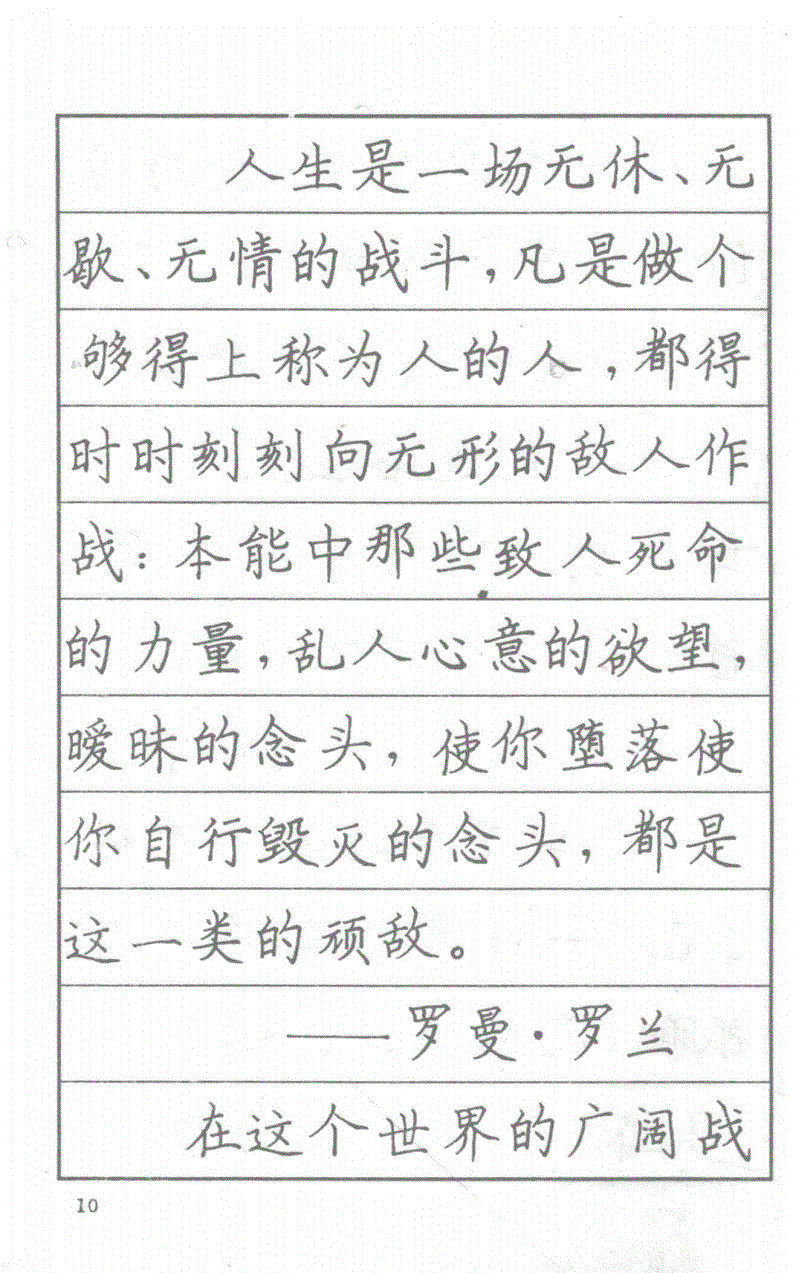 人生是一场无休、无
歇、无情的战斗，凡是做个
够得上称为人的人，都得
时时刻刻向无形的敌人作
战：本能中那些致人死命
的力量，乱人心意的欲望，
暧昧的念头，使你堕落使
你自行毁灭的念头，都是
这一类的顽敌。
——罗曼·罗兰
在这个世界的广阔战
10